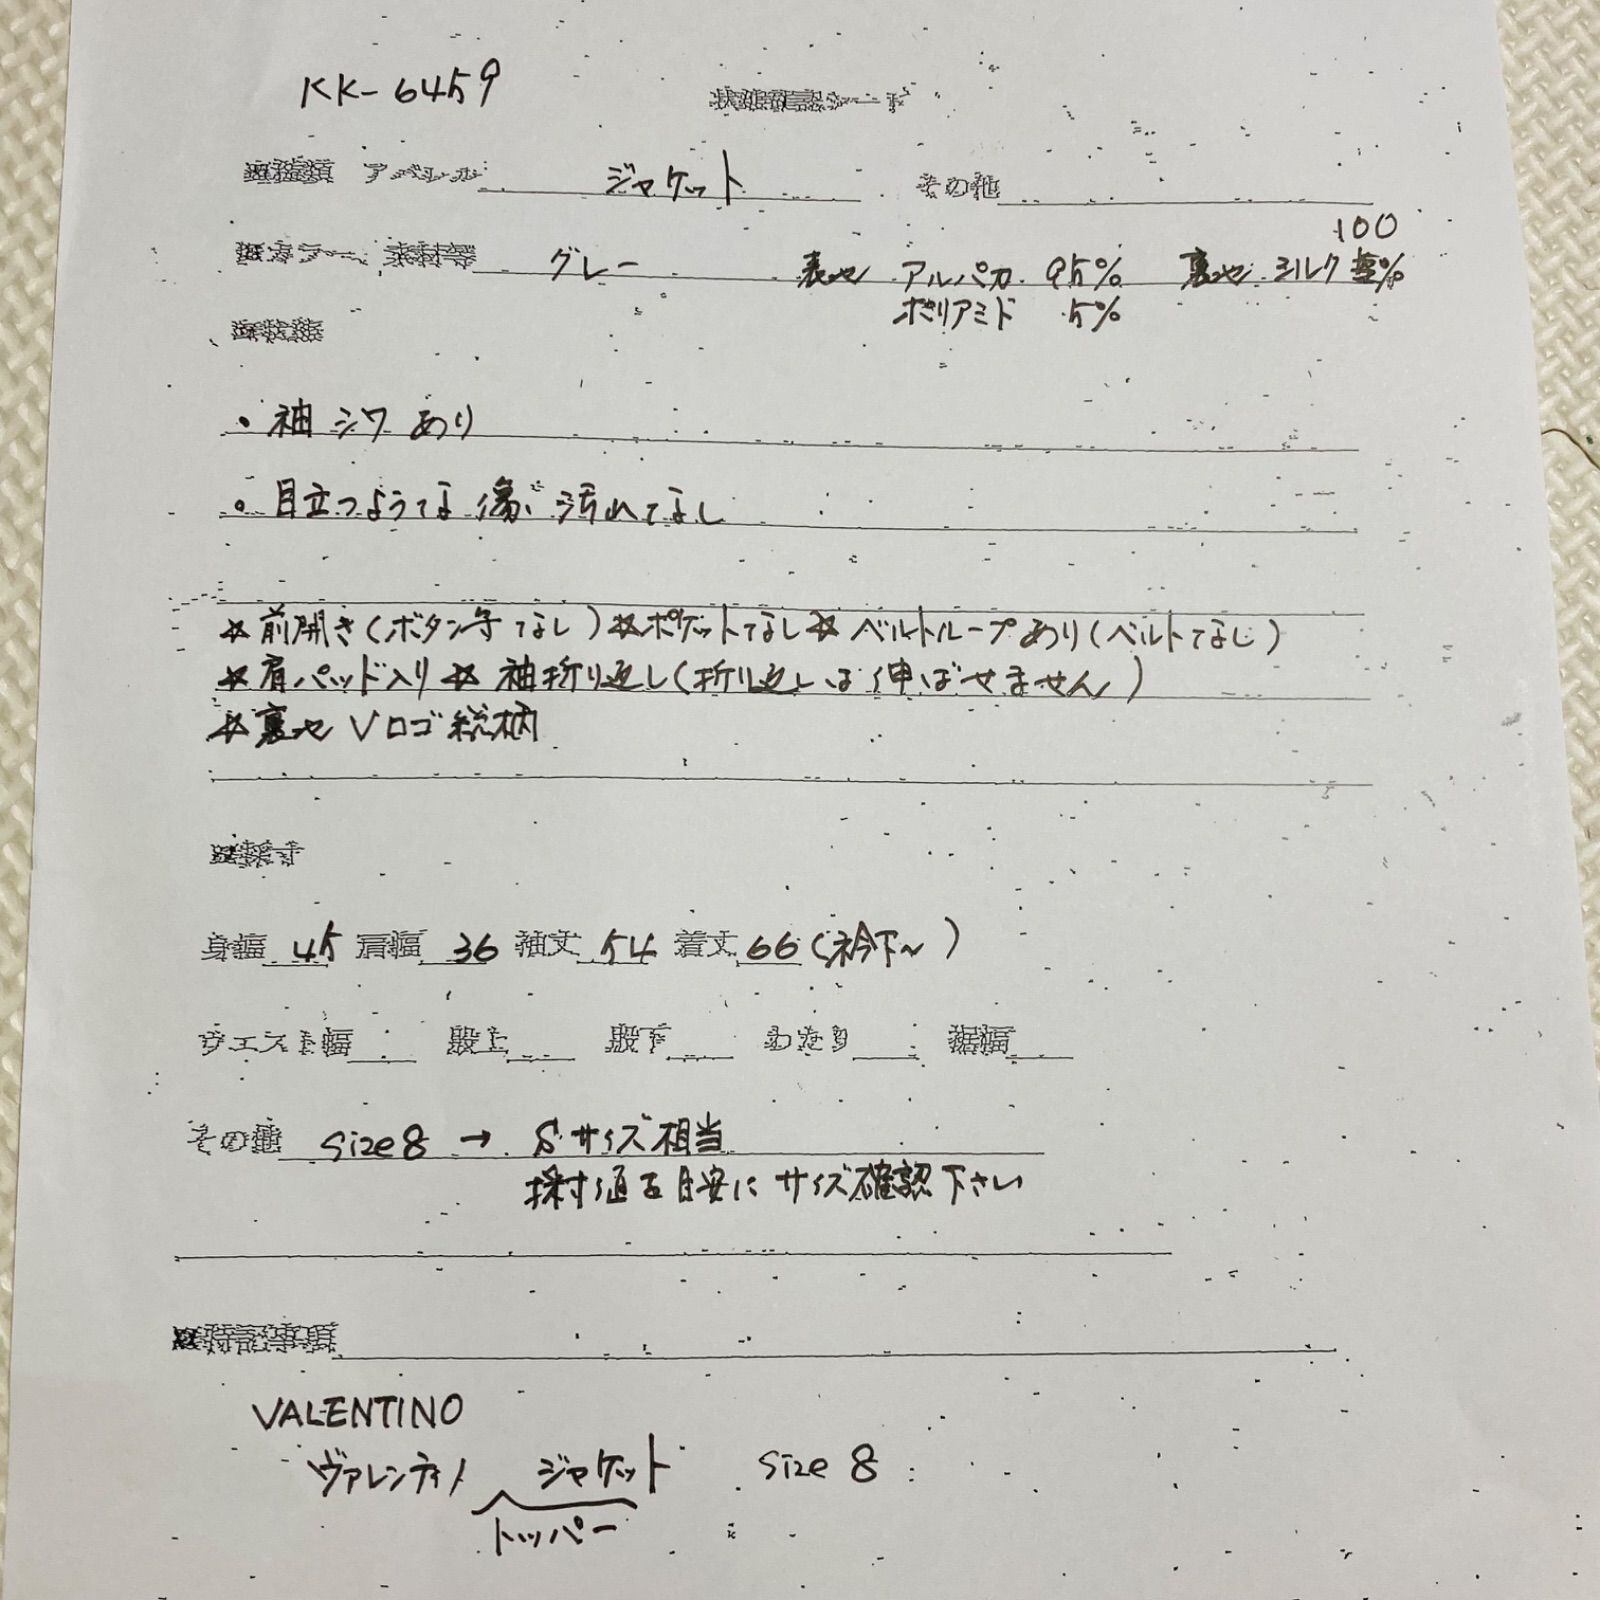 KK-6459 状態確認シート
※種類 アパレル ジャケット その他
100
※カラー、素材等 グレー 表地 アルパカ 95% 裏地 シルク %
ポリアミド 5%
※状態
・袖シワあり
・目立つような傷、汚れなし
☆前開き(ボタン等なし)☆ポケットなし☆ベルトループあり(ベルトなし)
☆肩パッド入り☆袖折り返し(折り返しは伸ばせません)
☆裏地Vロゴ総柄
※採寸
身幅 45 肩幅 36 袖丈 54 着丈 66(衿下~)
ウエスト幅 股上 股下 わたり 裾幅
その他 size8 → Sサイズ相当
採寸値を目安にサイズ確認下さい
※特記事項
VALENTINO
ヴァレンティノ ジャケット size 8
トッパー